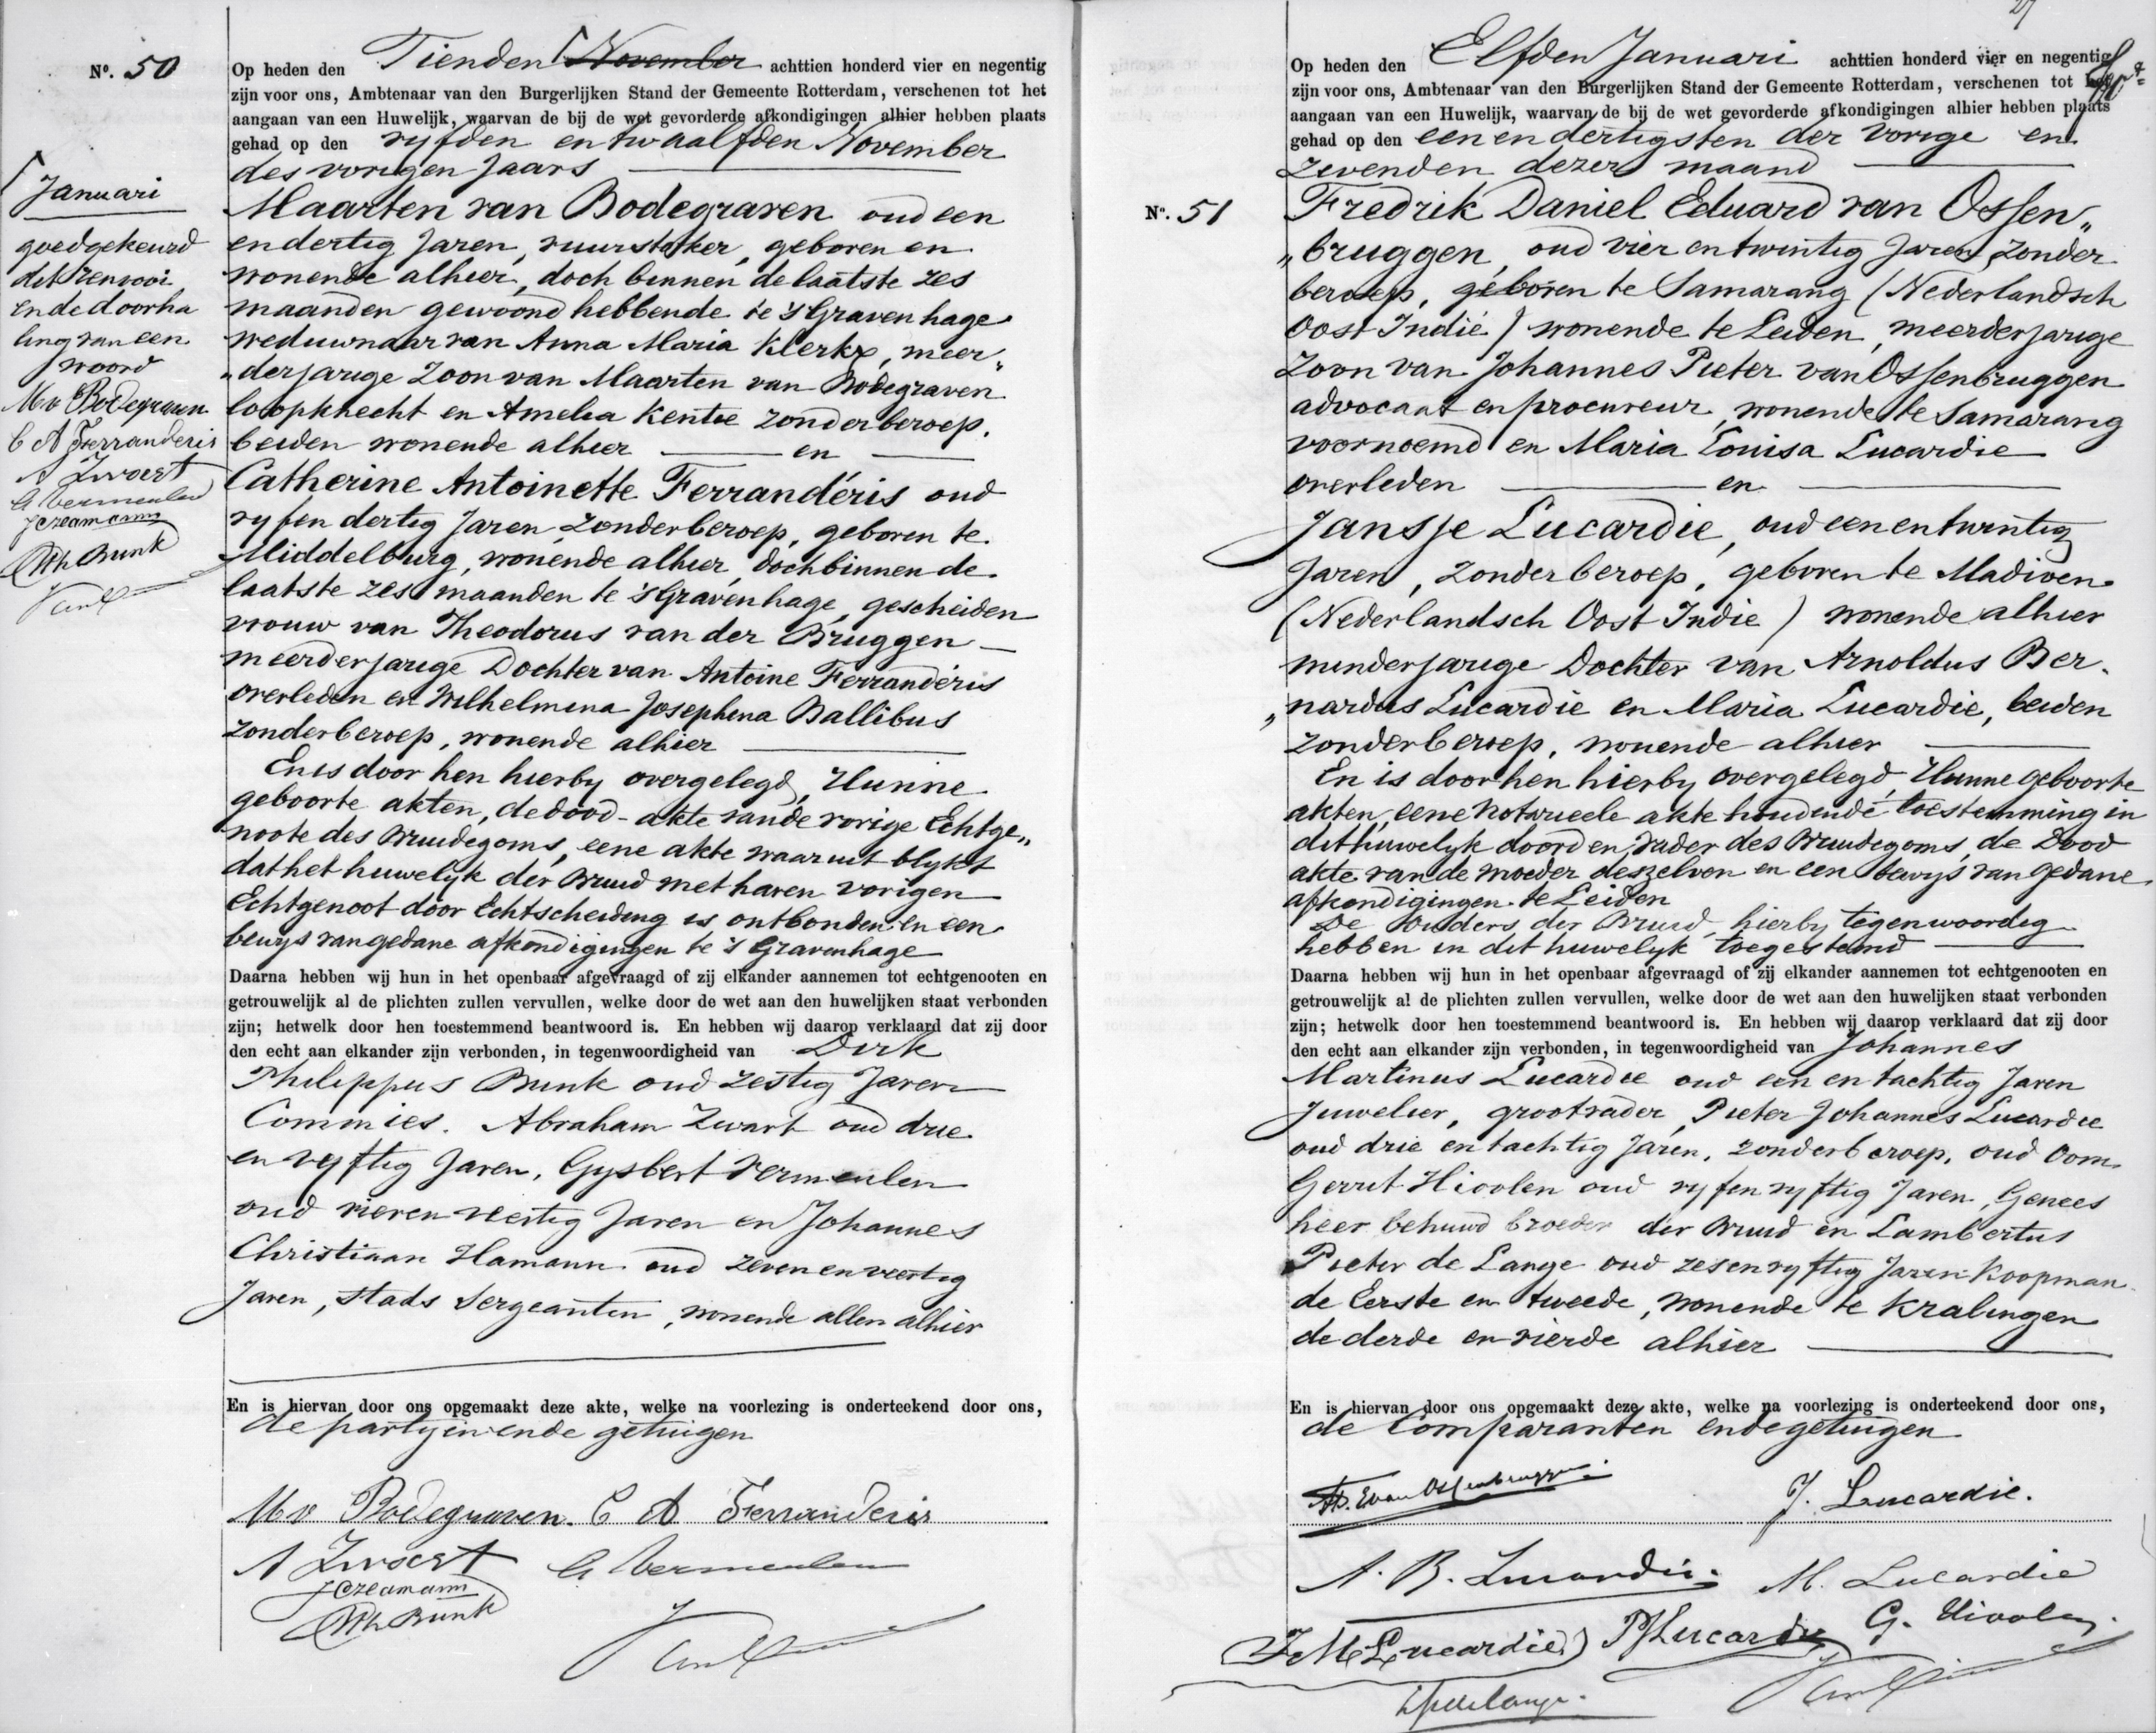 Nº. 50
Op heden den Tienden ⌈ November achttien honderd vier en negentig
zijn voor ons, Ambtenaar van den Burgerlijken Stand der Gemeente Rotterdam, verschenen tot het
aangaan van een Huwelijk, waarvan de bij de wet gevorderde afkondigingen alhier hebben plaats
gehad op den vyfden en twaalfden November
des vorigen Jaars
Maarten van Bodegraven oud een
en dertig Jaren, vuurstoker, geboren en
wonende alhier, doch binnen de laatste zes
maanden gewoond hebbende te 's Gravenhage
weduwnaar van Anna Maria Klerkx, meer„
„derjarige Zoon van Maarten van Bodegraven
loopknecht en Amelia Kentie zonder beroep,
beiden wonende alhier en
Catherine Antoinette Ferrandéris oud
vyfen dertig Jaren, zonder beroep, geboren te
Middelburg, wonende alhier, doch binnen de
laatste zes maanden te 's Gravenhage, gescheiden
vrouw van Theodorus van der Bruggen
meerderjarige Dochter van Antoine Ferrandéris
overleden en Wilhelmina Josephina Ballibus
zonder beroep, wonende alhier
En is door hen hierby overgelegd, Hunne
geboorte akten, de dood-akte van de vorige Echtge„
noote des Bruidegoms, eene akte waaruit blykt
dat het huwelyk der Bruid met haren vorigen
Echtgenoot door Echtscheiding is ontbonden en een
bewys van gedane afkondigingen te 's Gravenhage
Daarna hebben wij hun in het openbaar afgevraagd of zij elkander aannemen tot echtgenooten en
getrouwelijk al de plichten zullen vervullen, welke door de wet aan den huwelijken staat verbonden
zijn; hetwelk door hen toestemmend beantwoord is. En hebben wij daarop verklaard dat zij door
den echt aan elkander zijn verbonden, in tegenwoordigheid van Dirk
Philippus Bunk oud zestig Jaren
Commies. Abraham Zwart oud drie
en vyftig Jaren, Gysbert Vermeulen
oud vieren veertig Jaren en Johannes
Christiaan Hamann oud zeven en veertig
Jaren, stads Sergeanten, wonende allen alhier
En is hiervan door ons opgemaakt deze akte, welke na voorlezing is onderteekend door ons,
de partyen en de getuigen
M v Bodegraven. C A Ferranderis
A Zwart G Vermeulen
J C Hamann
D Ph Bunk
⌈ Januari
goedgekeurd
dit renvooi
en de doorha
ling van een
woord
M v Bodegraven
C A Ferranderis
A Zwart
G Vermeulen
J C Hamann
D Ph Bunk
27
Op heden den Elfden Januari achttien honderd vier en negentig
zijn voor ons, Ambtenaar van den Burgerlijken Stand der Gemeente Rotterdam, verschenen tot het
aangaan van een Huwelijk, waarvan de bij de wet gevorderde afkondigingen alhier hebben plaats
gehad op den een en dertigsten der vorige en
zevenden dezer maand
Nº. 51
Fredrik Daniel Eduard van Ossen„
„bruggen, oud vier en twintig Jaren, zonder
beroep, geboren te Samarang (Nederlandsch
Oost Indië) wonende te Leiden, meerderjarige
Zoon van Johannes Pieter van Ossenbruggen
advocaat en procureur, wonende te Samarang
voornoemd en Maria Louisa Lucardie
overleden en
Jansje Lucardie, oud een en twintig
Jaren, zonder beroep, geboren te Madioen
(Nederlandsch Oost Indie) wonende alhier
minderjarige Dochter van Arnoldus Ber„
„nardus Lucardie en Maria Lucardie, beiden
zonder beroep, wonende alhier
En is door hen hierby overgelegd, Hunne geboorte
akten, eene notarieele akte houdende toestemming in
dit huwelyk door den vader des Bruidegoms, de Dood
akte van de moeder deszelven en een bewys van gedane
afkondigingen te Leiden
De ouders der Bruid, hierby tegenwoordig
hebben in dit huwelyk toegestemd
Daarna hebben wij hun in het openbaar afgevraagd of zij elkander aannemen tot echtgenooten en
getrouwelijk al de plichten zullen vervullen, welke door de wet aan den huwelijken staat verbonden
zijn; hetwelk door hen toestemmend beantwoord is. En hebben wij daarop verklaard dat zij door
den echt aan elkander zijn verbonden, in tegenwoordigheid van Johannes
Martinus Lucardie oud een en tachtig Jaren
Juwelier, grootvader, Pieter Johannes Lucardie
oud drie en tachtig Jaren, zonder beroep, oud Oom
Gerrit Hioolen oud vyfen vyftig Jaren, Genees
heer behuwd broeder der Bruid en Lambertus
Pieter de Lange oud zesen vyftig Jaren Koopman
de Eerste en tweede, wonende te Kralingen
de derde en vierde alhier
En is hiervan door ons opgemaakt deze akte, welke na voorlezing is onderteekend door ons,
de Comparanten en de getuigen
F.D.E van Ossenbruggen J. Lucardie.
A. B. Lucardie. M. Lucardie
J M Lucardie P J Lucardie G. Hioolen
L P de Lange.